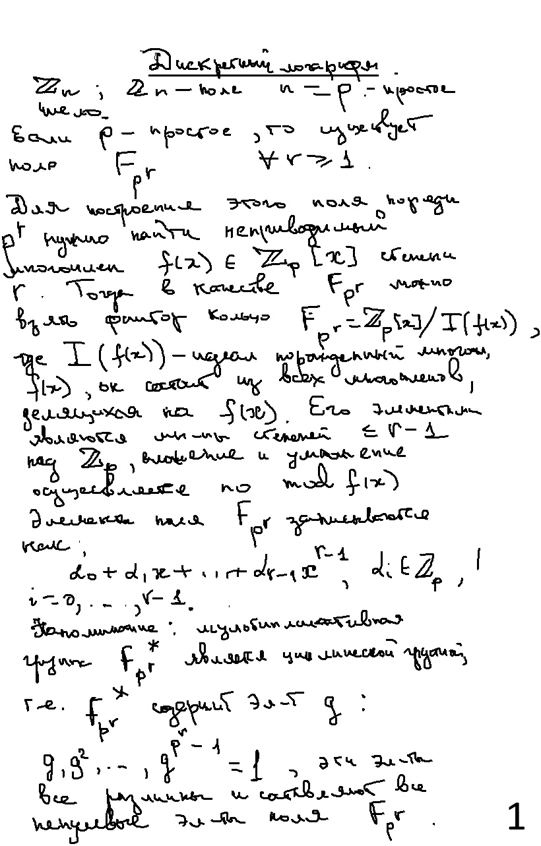 Дискретный логарифм.
ℤn ; ℤn – поле n = p – простое
число.
Если p – простое, то существует
поле F_{p^r} ∀ r ⩾ 1.
Для построения этого поля порядк
p^r нужно найти неприводимый
многочлен f(x) ∈ ℤp [x] степени
r. Тогда в качестве F_{p^r} можно
взять фактор кольцо F_{p^r} = ℤp[x]/I(f(x)),
где I(f(x)) – идеал порожденный многочл,
f(x), он состоит из всех многочленов,
делящихся на f(x). Его элементами
являются мн-ны степеней ≤ r-1
над ℤp, сложение и умножение
осуществляется по mod f(x)
Элементы поля F_{p^r} записываются
как:
α0 + α1x + ... + α_{r-1}x^{r-1}, αi ∈ ℤp,
i = 0, ..., r-1.
Напоминание: мультипликативная
группа F*_{p^r} является циклической группой,
т.е. F*_{p^r} содержит эл-т g :
g, g², ..., g^{p^r - 1} = 1, эти эл-ты
все различны и составляют все
ненулевые эл-ты поля F_{p^r}.
1